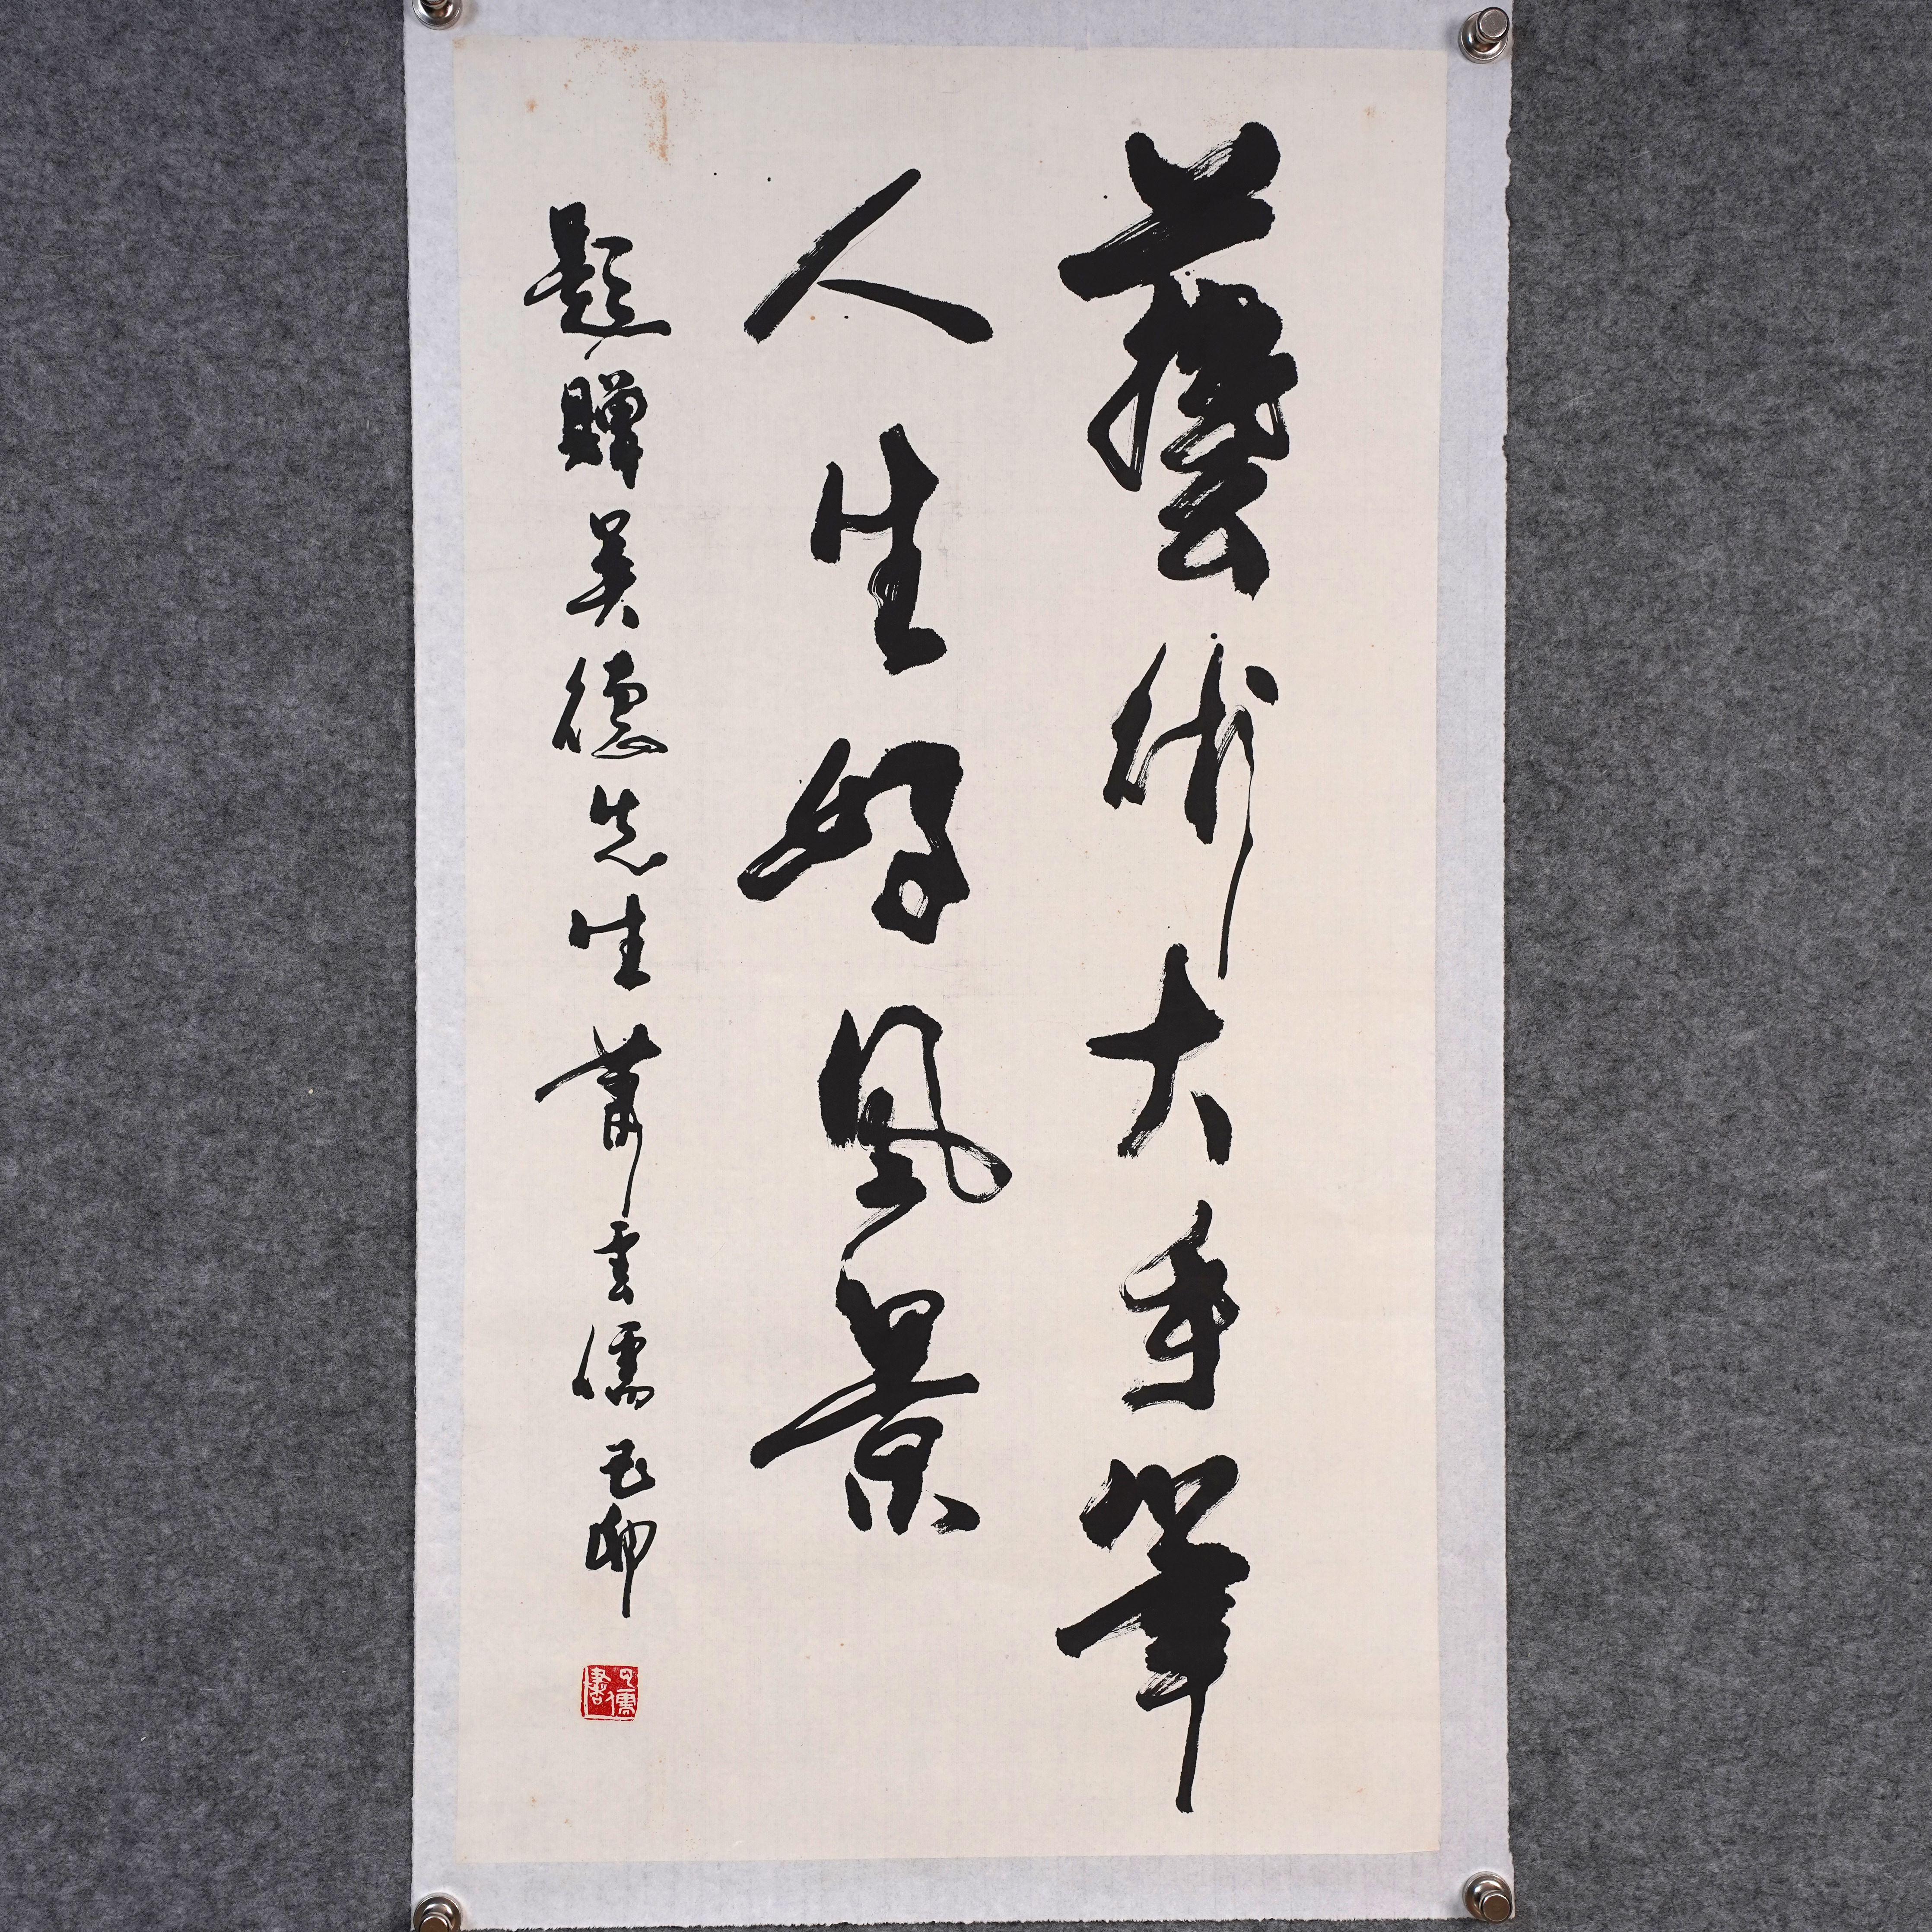 藝術大手筆
人生好風景
題贈吴德先生蕭雲儒己卯
雲儒書